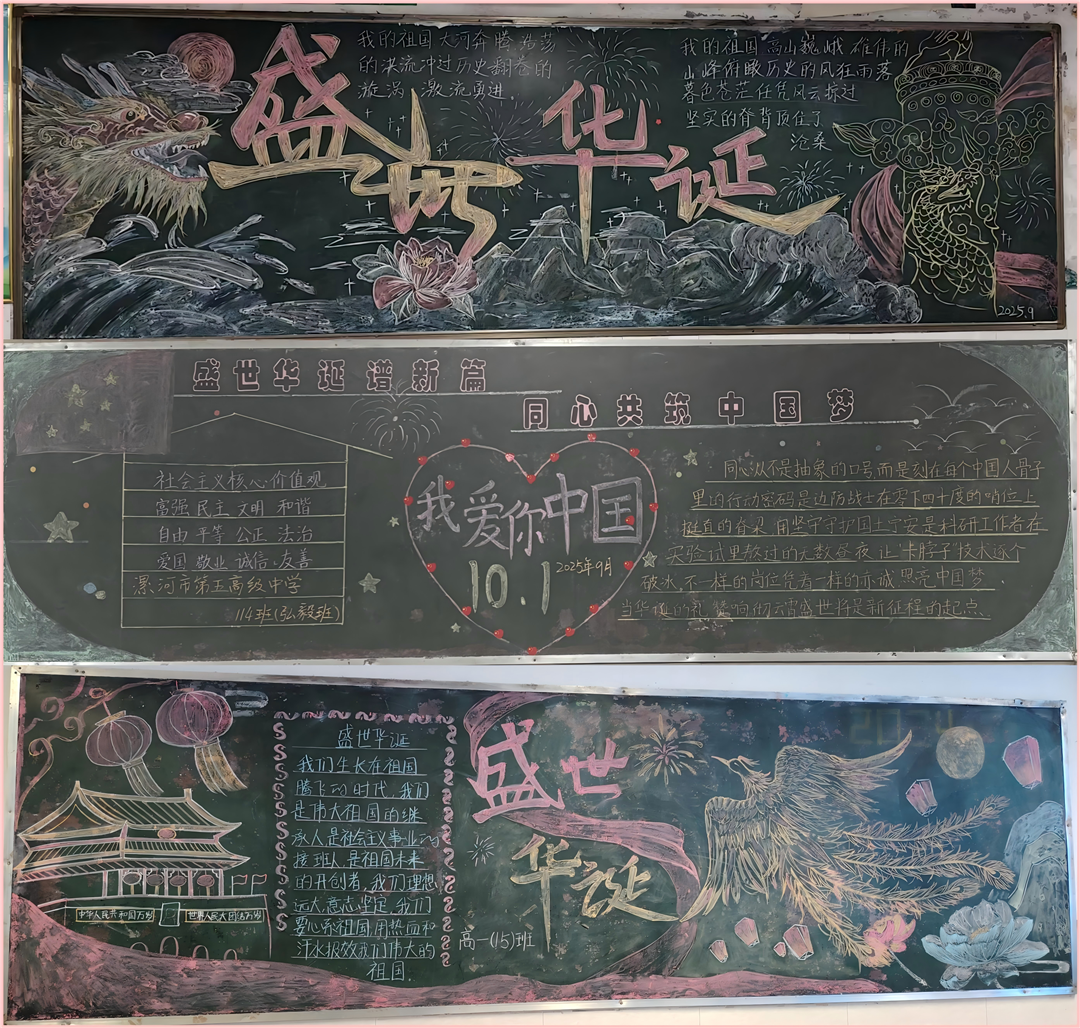 盛世华诞
我的祖国大河奔腾浩荡
的洪流冲过历史翻卷的
漩涡激流勇进.
我的祖国高山巍峨雄伟的
山峰俯瞰历史的风狂雨落
暮色苍茫任凭风云掠过
坚实的脊背顶住了
沧桑
2025.9
盛世华诞谱新篇
同心共筑中国梦
社会主义核心价值观
富强 民主 文明 和谐
自由 平等 公正 法治
爱国 敬业 诚信、友善
漯河市第五高级中学
114班(弘毅班)
我爱你中国
10.1
2025年9月
同心从不是抽象的口号而是刻在每个中国人骨子
里的行动密码是边防战士在零下四十度的哨位上
挺直的脊梁.用坚守守护国土守安是科研工作者在
实验试里熬过的无数昼夜 让"卡脖子"技术逐个
破冰.不一样的岗位凭着一样的赤诚照亮中国梦.
当华诞的礼赞响彻云霄盛世将是新征程的起点
盛世华诞
我们生长在祖国
腾飞的时代,我们
是伟大祖国的继
承人是社会主义事业的
接班人.是祖国未来
的开创者,我们理想
远大意志坚定,我们
要心系祖国.用热血和
汗水报效我们伟大的
祖国.
中华人民共和国万岁
世界人民大团结万岁
盛世
华诞
高一(15)班